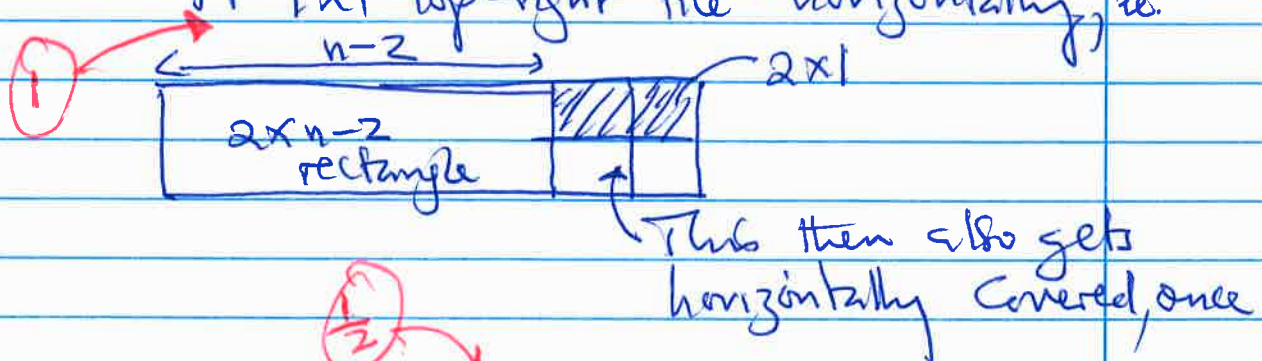 the top-right tile horizontally, ie.
1
n-2
2x1
2x n-2
rectangle
This then also gets
horizontally covered, once
1/2